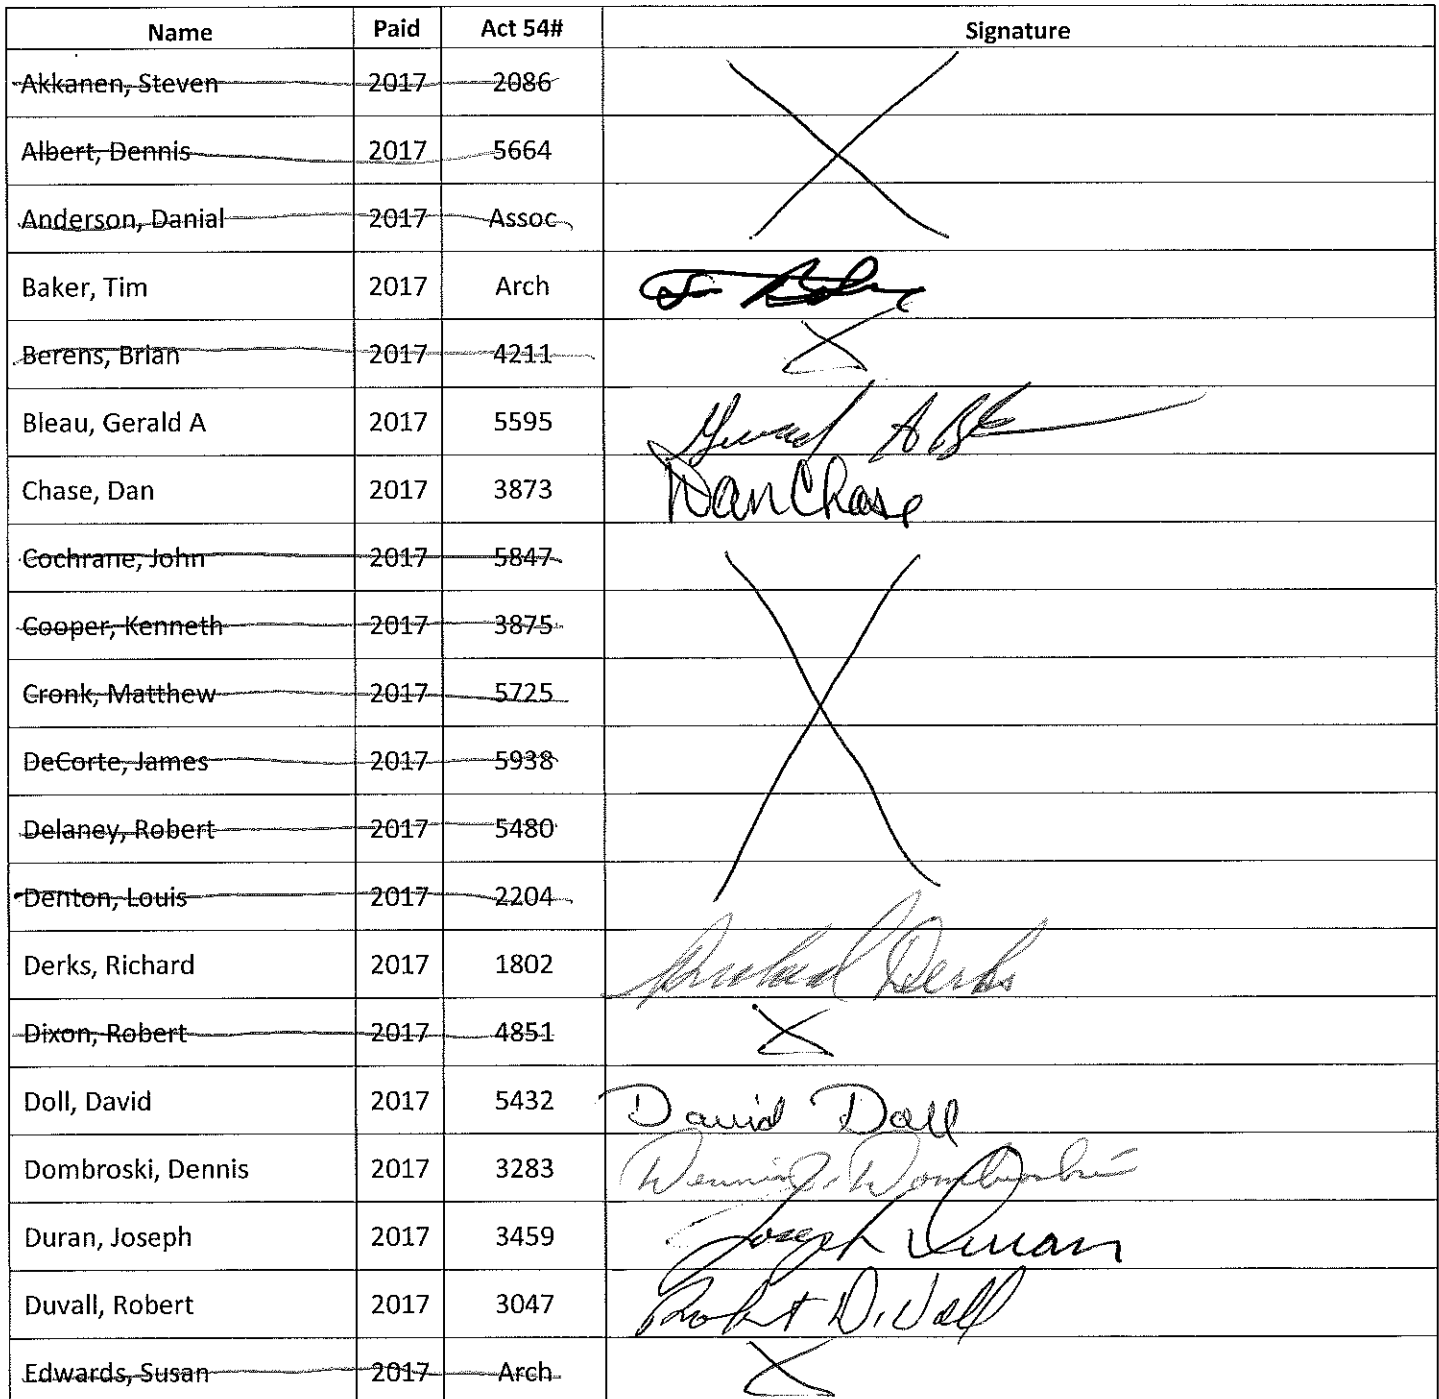 Name Paid Act 54# Signature
Akkanen, Steven 2017 2086
Albert, Dennis 2017 5664
Anderson, Danial 2017 Assoc
Baker, Tim 2017 Arch
Berens, Brian 2017 4211
Bleau, Gerald A 2017 5595 Gerald A
Chase, Dan 2017 3873 Dan Chase
Cochrane, John 2017 5847
Cooper, Kenneth 2017 3875
Cronk, Matthew 2017 5725
DeCorte, James 2017 5938
Delaney, Robert 2017 5480
Denton, Louis 2017 2204
Derks, Richard 2017 1802 Richard Derks
Dixon, Robert 2017 4851
Doll, David 2017 5432 David Doll
Dombroski, Dennis 2017 3283 Dennis J. Dombroski
Duran, Joseph 2017 3459 Joseph Duran
Duvall, Robert 2017 3047 Robert DuVall
Edwards, Susan 2017 Arch